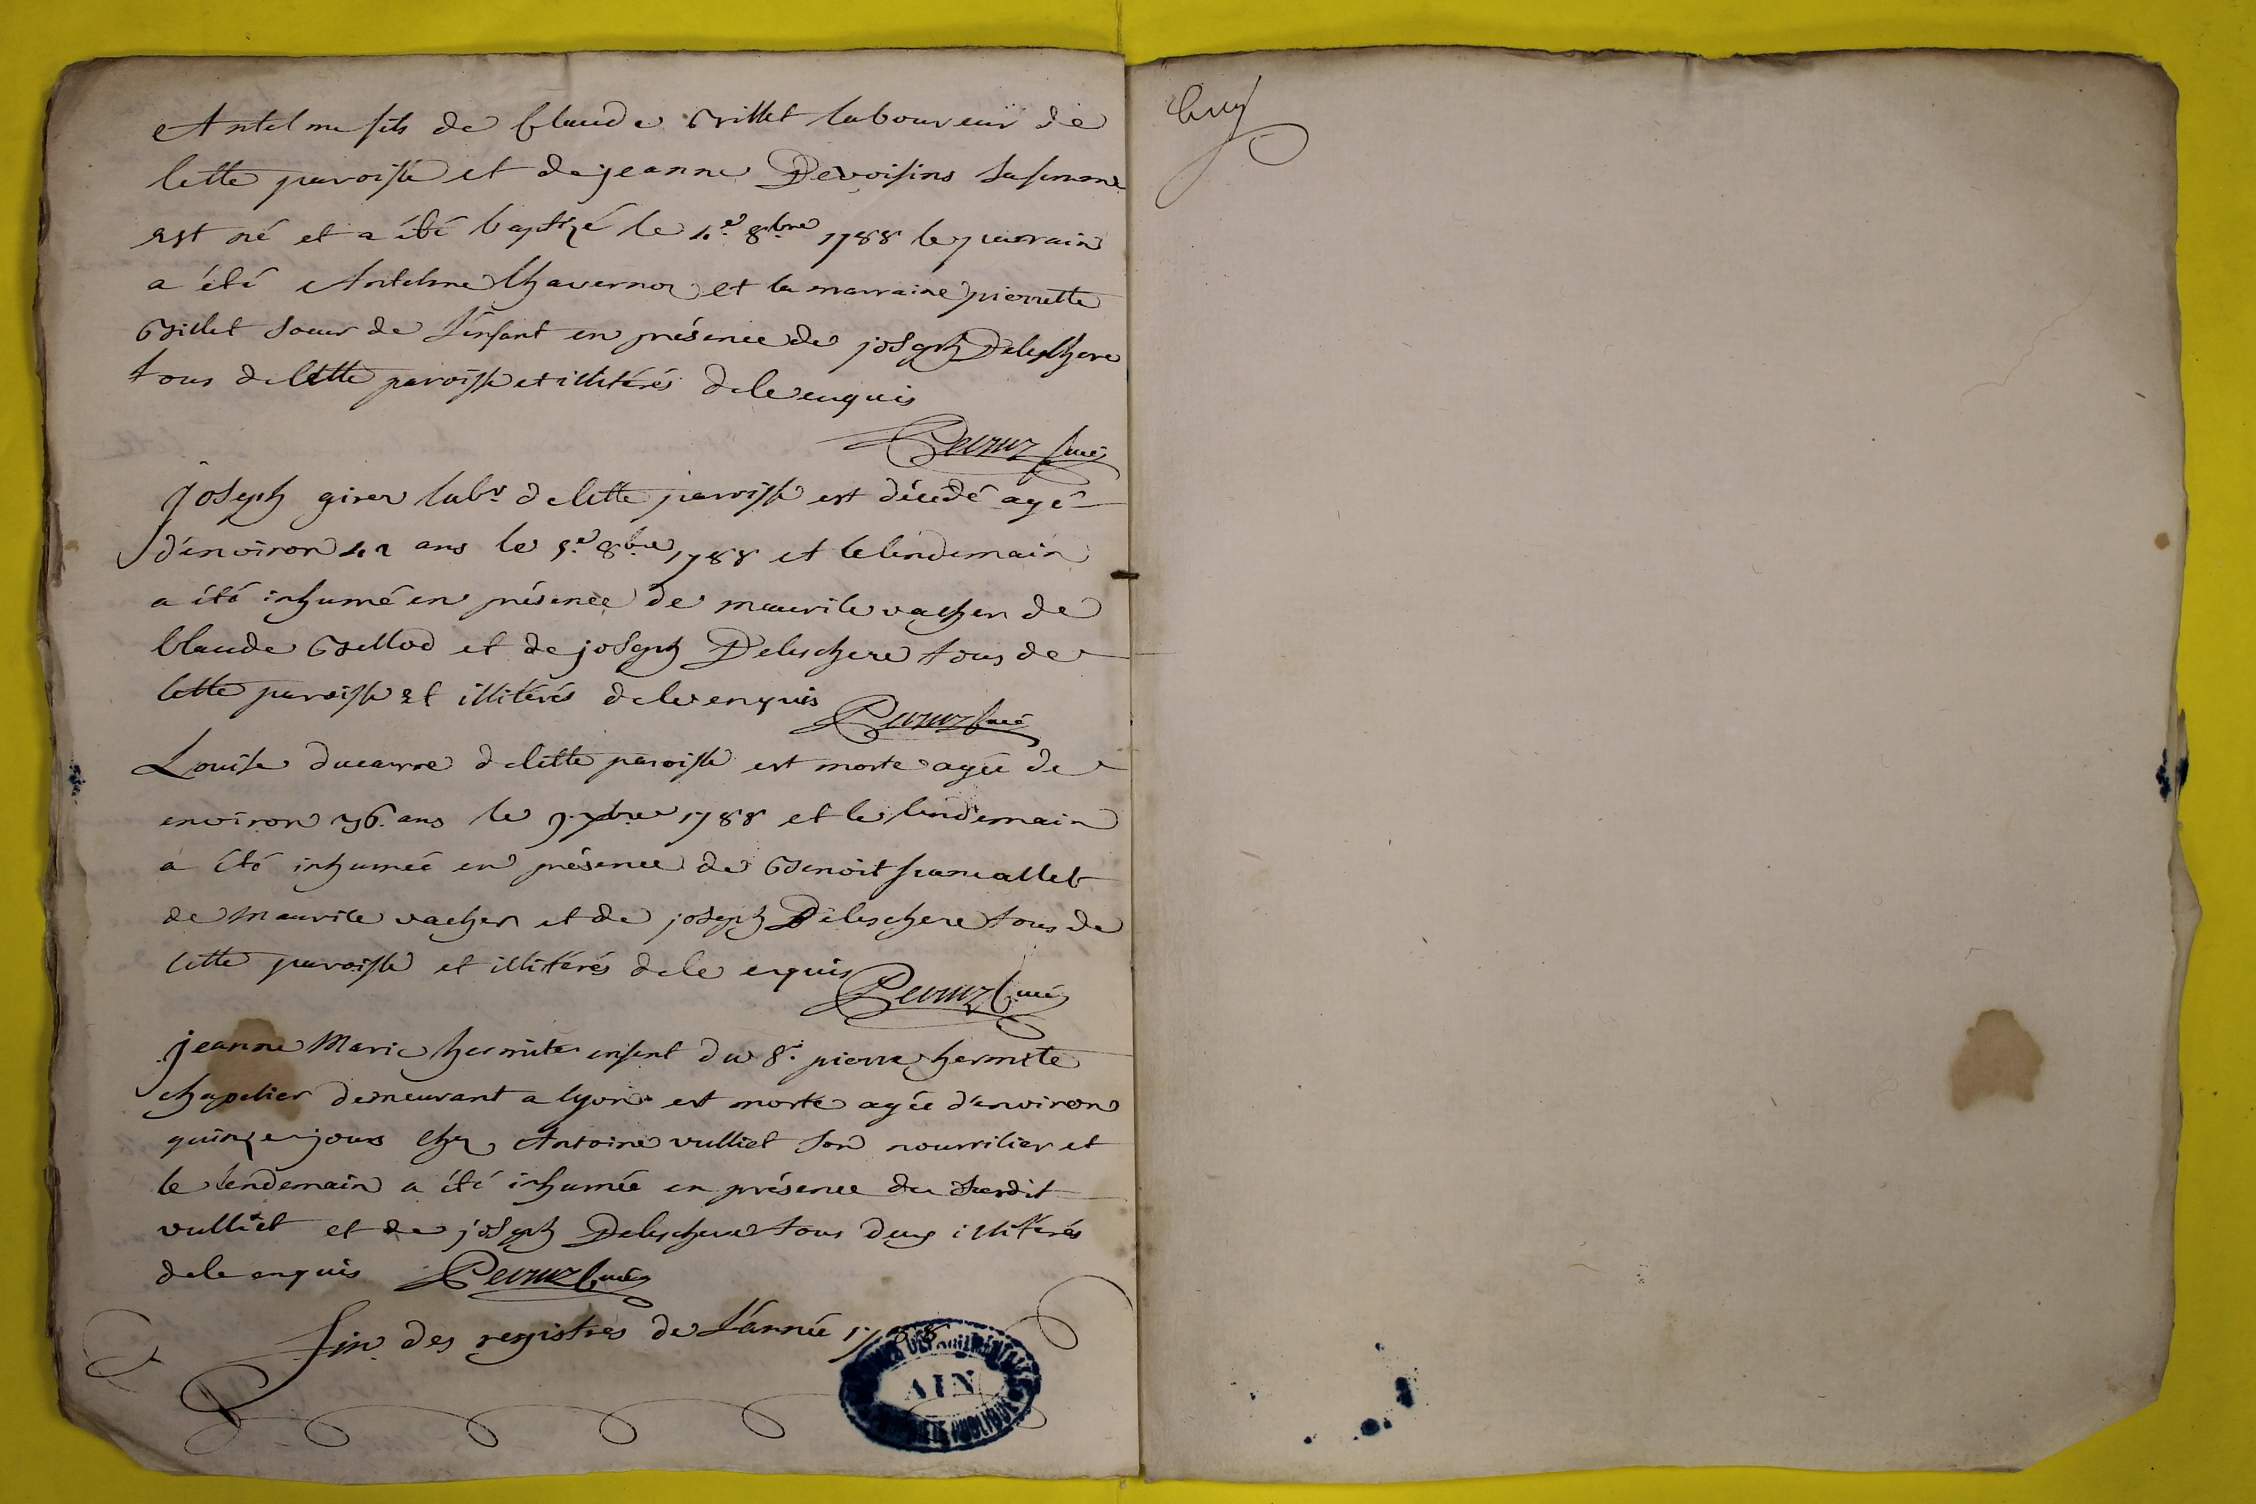 Antelme fils de Claude Grillet laboureur de
Cette paroisse et de jeanne Devoisins sa femme
est né et a été baptizé le 4.e 8.bre 1788 le parrain
a été Antelme Chavernoz et la marraine pierrette
Grillet soeur de L'enfant en présence de joseph Deleschere
tous de Cette paroisse et illitérés de le enquis
Curé
joseph girer labr. de Cette paroisse est décédé agé
d'environ 42 ans le 5.e 8.bre 1788 et le lendemain
a été inhumé en présence de maurile vacher de
Claude Grillod et de joseph Deleschere tous de
Cette paroisse et illitérés de le enquis
Curé
Louise ducarre de Cette paroisse est morte agée de
environ 76. ans le 9. 1788 et le lendemain
a été inhumée en présence de Benoit
de Maurile vacher et de joseph Deleschere tous de
Cette paroisse et illitérés de le enquis
Curé
jeanne Marie hermite enfant du Sr. pierre hermite
chapelier demeurant a lyon est morte agée d'environ
quinze jours chez Antoine vulliet son nourrilier et
le lendemain a été inhumée en présence du susdit
vulliet et de joseph Deleschere tous deux illitérés
de le enquis Curé
fin des registres de L'année 1788
ARCHIVES DÉPARTEMENTALES
AIN